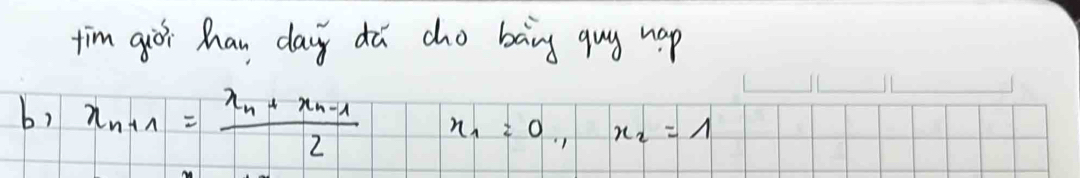 tìm giới hạn dãy đã cho bằng quy nạp
b, x_{n+1} = \frac{x_n + x_{n-1}}{2} x_1 = 0., x_2 = 1